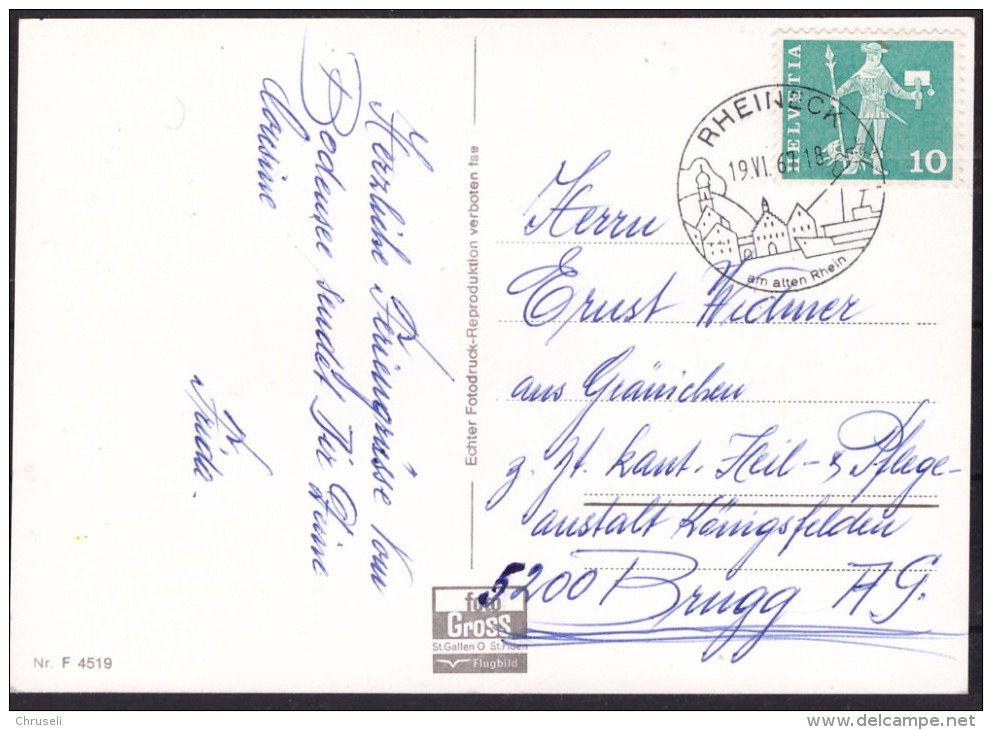 Herzliche Feriengrüsse vom
Bodensee sendet Dir Deine
Cousine
Frida.
Echter Fotodruck-Reproduktion verboten fse
HELVETIA
10
RHEINECK
19.VI.67 18
am alten Rhein
Herrn
Ernst Widmer
aus Gränichen
z. Zt. kant. Heil- & Pflege-
anstalt Königsfelden
5200 Brugg AG.
foto
Gross
St.Gallen O St.fiden
Flugbild
Nr. F 4519
Chruseli
delcampe.net